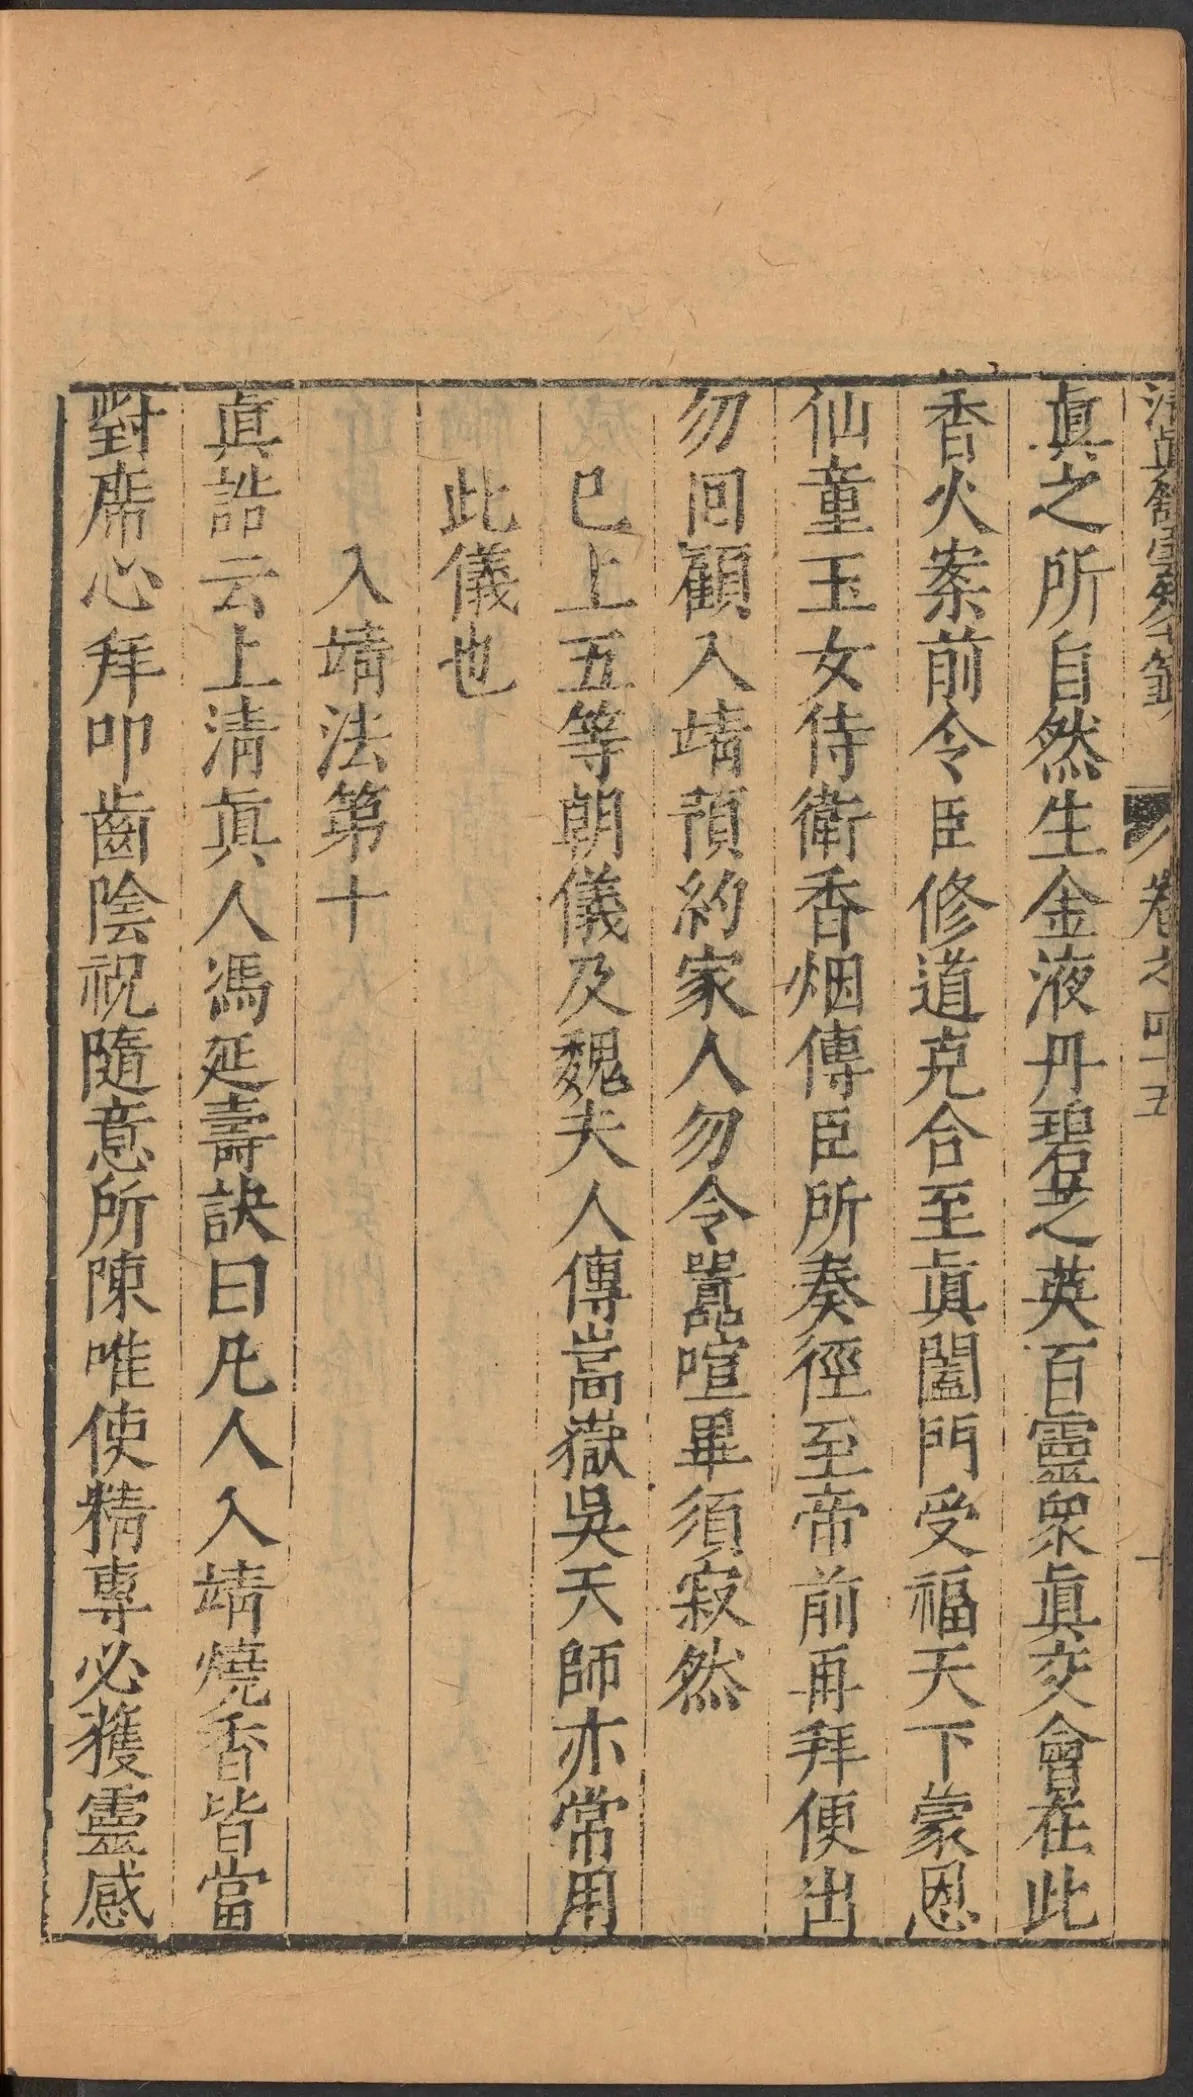 清眞館雲笈七籤 卷之四十五 十
眞之所自然生金液丹碧芝英百靈眾眞交會在此
香火案前令臣修道克合至眞闔門受福天下蒙恩
仙童玉女侍衛香烟傳臣所奏徑至帝前再拜便出
勿回顧入靖預約家人勿令囂喧畢須寂然
已上五等朝儀及魏夫人傳嵩嶽吳天師亦常用
此儀也
入靖法第十
眞誥云上清眞人馮延壽訣曰凡人入靖燒香皆當
對席心拜叩齒陰祝隨意所陳唯使精專必獲靈感